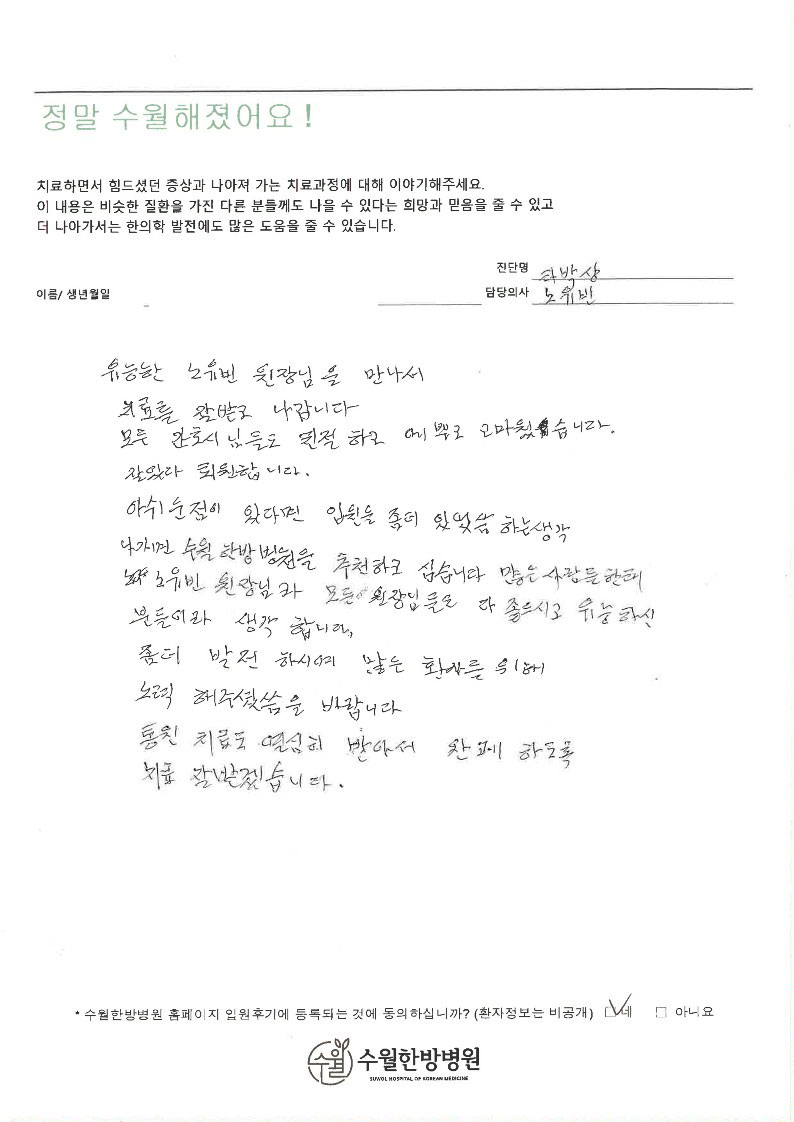 정말 수월해졌어요!
치료하면서 힘드셨던 증상과 나아져 가는 치료과정에 대해 이야기해주세요.
이 내용은 비슷한 질환을 가진 다른 분들께도 나을 수 있다는 희망과 믿음을 줄 수 있고
더 나아가서는 한의학 발전에도 많은 도움을 줄 수 있습니다.
진단명 타박상
이름/ 생년월일 담당의사 노유빈
유능한 노유빈 원장님을 만나서
치료를 잘받고 나갑니다
모든 간호사님들도 친절하고 예쁘고 고마웠습니다.
잘있다 퇴원합니다.
아쉬운점이 있다면 입원을 좀더 있었씀 하는생각
나가면 수월한방병원을 추천하고 십습니다 많은사람들한테
노유빈 원장님과 모든 원장님들도 다 좋으시고 유능하신
분들이라 생각 합니다,
좀더 발전 하시여 많은 환자를 위해
노력 해주셨씀을 바랍니다
통원 치료도 열심히 받아서 완페 하도록
치료 잘받겠습니다.
* 수월한방병원 홈페이지 입원후기에 등록되는 것에 동의하십니까? (환자정보는 비공개) ☑ 네 □ 아니요
수월 수월한방병원
SUWOL HOSPITAL OF KOREAN MEDICINE